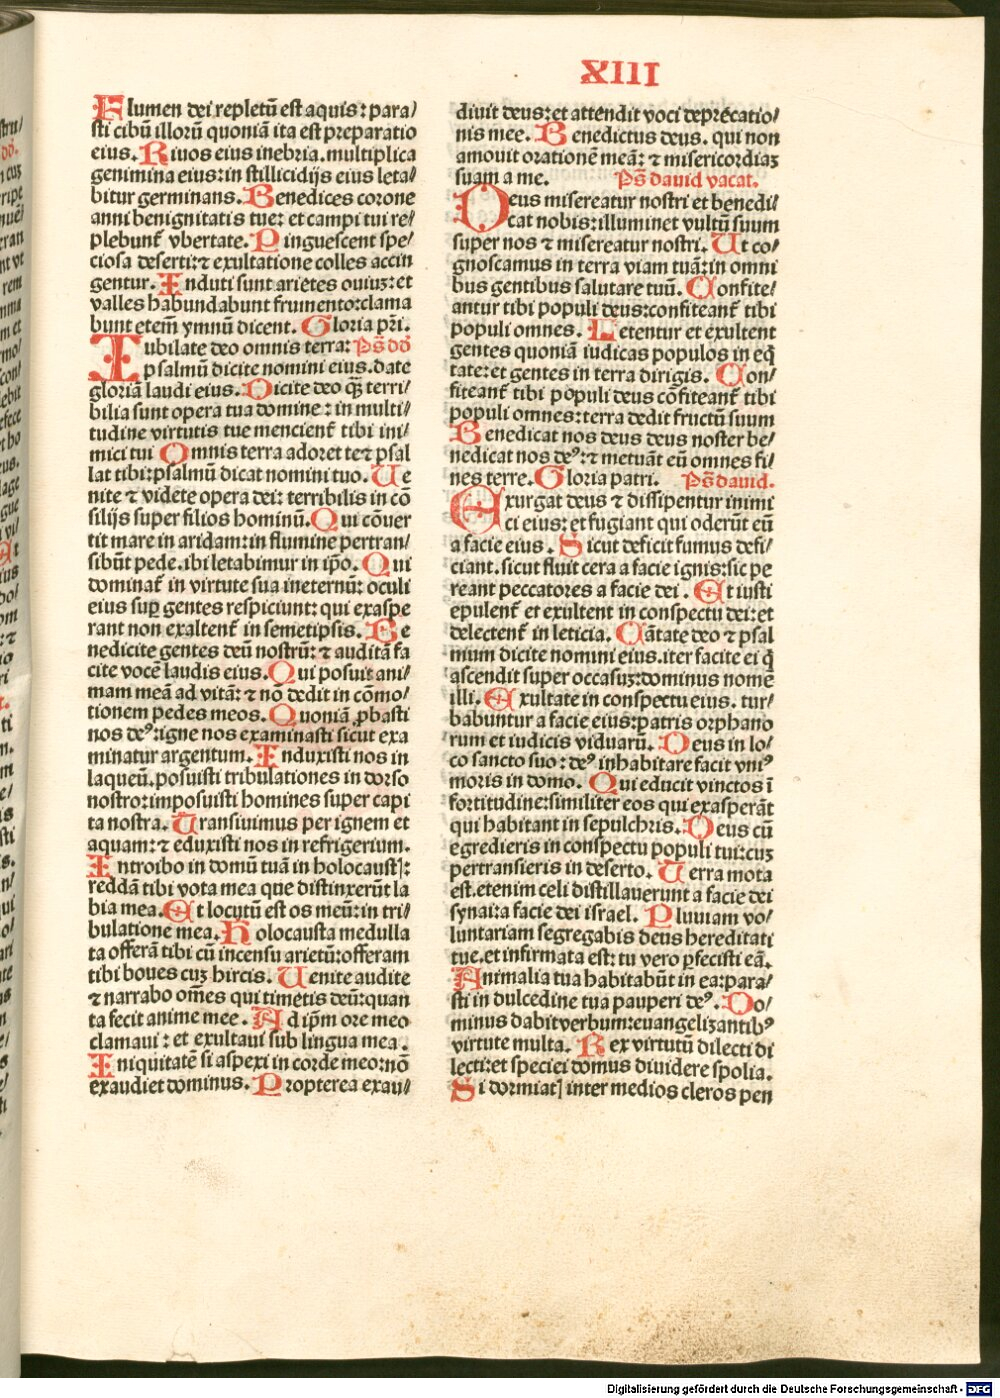 XIII
Flumen dei repletū est aquis: para/
sti cibū illorū quoniā ita est preparatio
eius. Riuos eius inebria. multiplica
genimina eius: in stillicidijs eius leta/
bitur germinans. Benedices corone
anni benignitatis tue: et campi tui re/
plebunt᷑ vbertate. Pinguescent spe/
ciosa deserti: ⁊ exultatione colles accin
gentur. Induti sunt arietes ouiuꝫ: et
valles habundabunt frumento: clama
bunt etem̄ ymnū dicent. Gloria pr̄i.
Iubilate deo omnis terra: Ps̄ dd̄
psalmū dicite nomini eius. date
gloriā laudi eius. Dicite deo q̄ꝫ terri/
bilia sunt opera tua domine: in multi/
tudine virtutis tue mencient᷑ tibi ini/
mici tui Omnis terra adoret te ⁊ psal
lat tibi: psalmū dicat nomini tuo. Ue
nite ⁊ videte opera dei: terribilis in cō
silijs super filios hominū. Qui cōuer
tit mare in aridam: in flumine pertran/
sibūt pede. ibi letabimur in ip̄o. Qui
dominat᷑ in virtute sua ineternū: oculi
eius suꝑ gentes respiciunt: qui exaspe
rant non exaltent᷑ in semetipsis. Be
nedicite gentes deū nostrū: ⁊ auditā fa
cite vocē laudis eius. Qui posuit ani/
mam meā ad vitā: ⁊ nō dedit in cōmo/
tionem pedes meos. Quoniā ꝓbasti
nos deꝰ: igne nos examinasti sicut exa
minatur argentum. Induxisti nos in
laqueū. posuisti tribulationes in dorso
nostro: imposuisti homines super capi
ta nostra. Transiuimus per ignem et
aquam: ⁊ eduxisti nos in refrigerium.
Introibo in domū tuā in holocaustꝭ:
reddā tibi vota mea que distinxerūt la
bia mea. Et locutū est os meū: in tri/
bulatione mea. Holocausta medulla
ta offerā tibi cū incensu arietū: offeram
tibi boues cuꝫ hircis. Uenite audite
⁊ narrabo om̄es qui timetis deū: quan
ta fecit anime mee. Ad ip̄m ore meo
clamaui: et exultaui sub lingua mea.
Iniquitatē si aspexi in corde meo: nō
exaudiet dominus. Propterea exau/
diuit deus: et attendit voci deprecatio/
nis mee. Benedictus deus. qui non
amouit orationē meā: ⁊ misericordiaꝫ
suam a me. Ps̄ dauid vacat.
Deus misereatur nostri et benedi/
cat nobis: illuminet vultū suum
super nos ⁊ misereatur nostri. Ut co/
gnoscamus in terra viam tuā: in omni
bus gentibus salutare tuū. Confite/
antur tibi populi deus: confiteant᷑ tibi
populi omnes. Letentur et exultent
gentes quoniā iudicas populos in eq̄
tate: et gentes in terra dirigis. Con/
fiteant᷑ tibi populi deus cōfiteant᷑ tibi
populi omnes: terra dedit fructū suum
Benedicat nos deus deus noster be/
nedicat nos deꝰ: ⁊ metuāt eū omnes fi/
nes terre. Gloria patri. Ps̄ dauid.
Exurgat deus ⁊ dissipentur inimi
ci eius: et fugiant qui oderūt eū
a facie eius. Sicut deficit fumus defi/
ciant. sicut fluit cera a facie ignis: sic pe
reant peccatores a facie dei. Et iusti
epulent᷑ et exultent in conspectu dei: et
delectent᷑ in leticia. Cātate deo ⁊ psal
mum dicite nomini eius. iter facite ei q̄
ascendit super occasuꝫ: dominus nomē
illi. Exultate in conspectu eius. tur/
babuntur a facie eius: patris orphano
rum et iudicis viduarū. Deus in lo/
co sancto suo: deꝰ inhabitare facit vniꝰ
moris in domo. Qui educit vinctos ī
fortitudine: similiter eos qui exasperāt
qui habitant in sepulchris. Deus cū
egredieris in conspectu populi tui: cuꝫ
pertransieris in deserto. Terra mota
est. etenim celi distillauerunt a facie dei
synai: a facie dei israel. Pluuiam vo/
luntariam segregabis deus hereditati
tue. et infirmata est: tu vero ꝑfecisti eā.
Animalia tua habitabūt in ea: para/
sti in dulcedine tua pauperi deꝰ. Do/
minus dabit verbum: euangelizantibꝰ
virtute multa. Rex virtutū dilecti di
lecti: et speciei domus diuidere spolia.
Si dormiatꝭ inter medios cleros pen
Digitalisierung gefördert durch die Deutsche Forschungsgemeinschaft - DFG